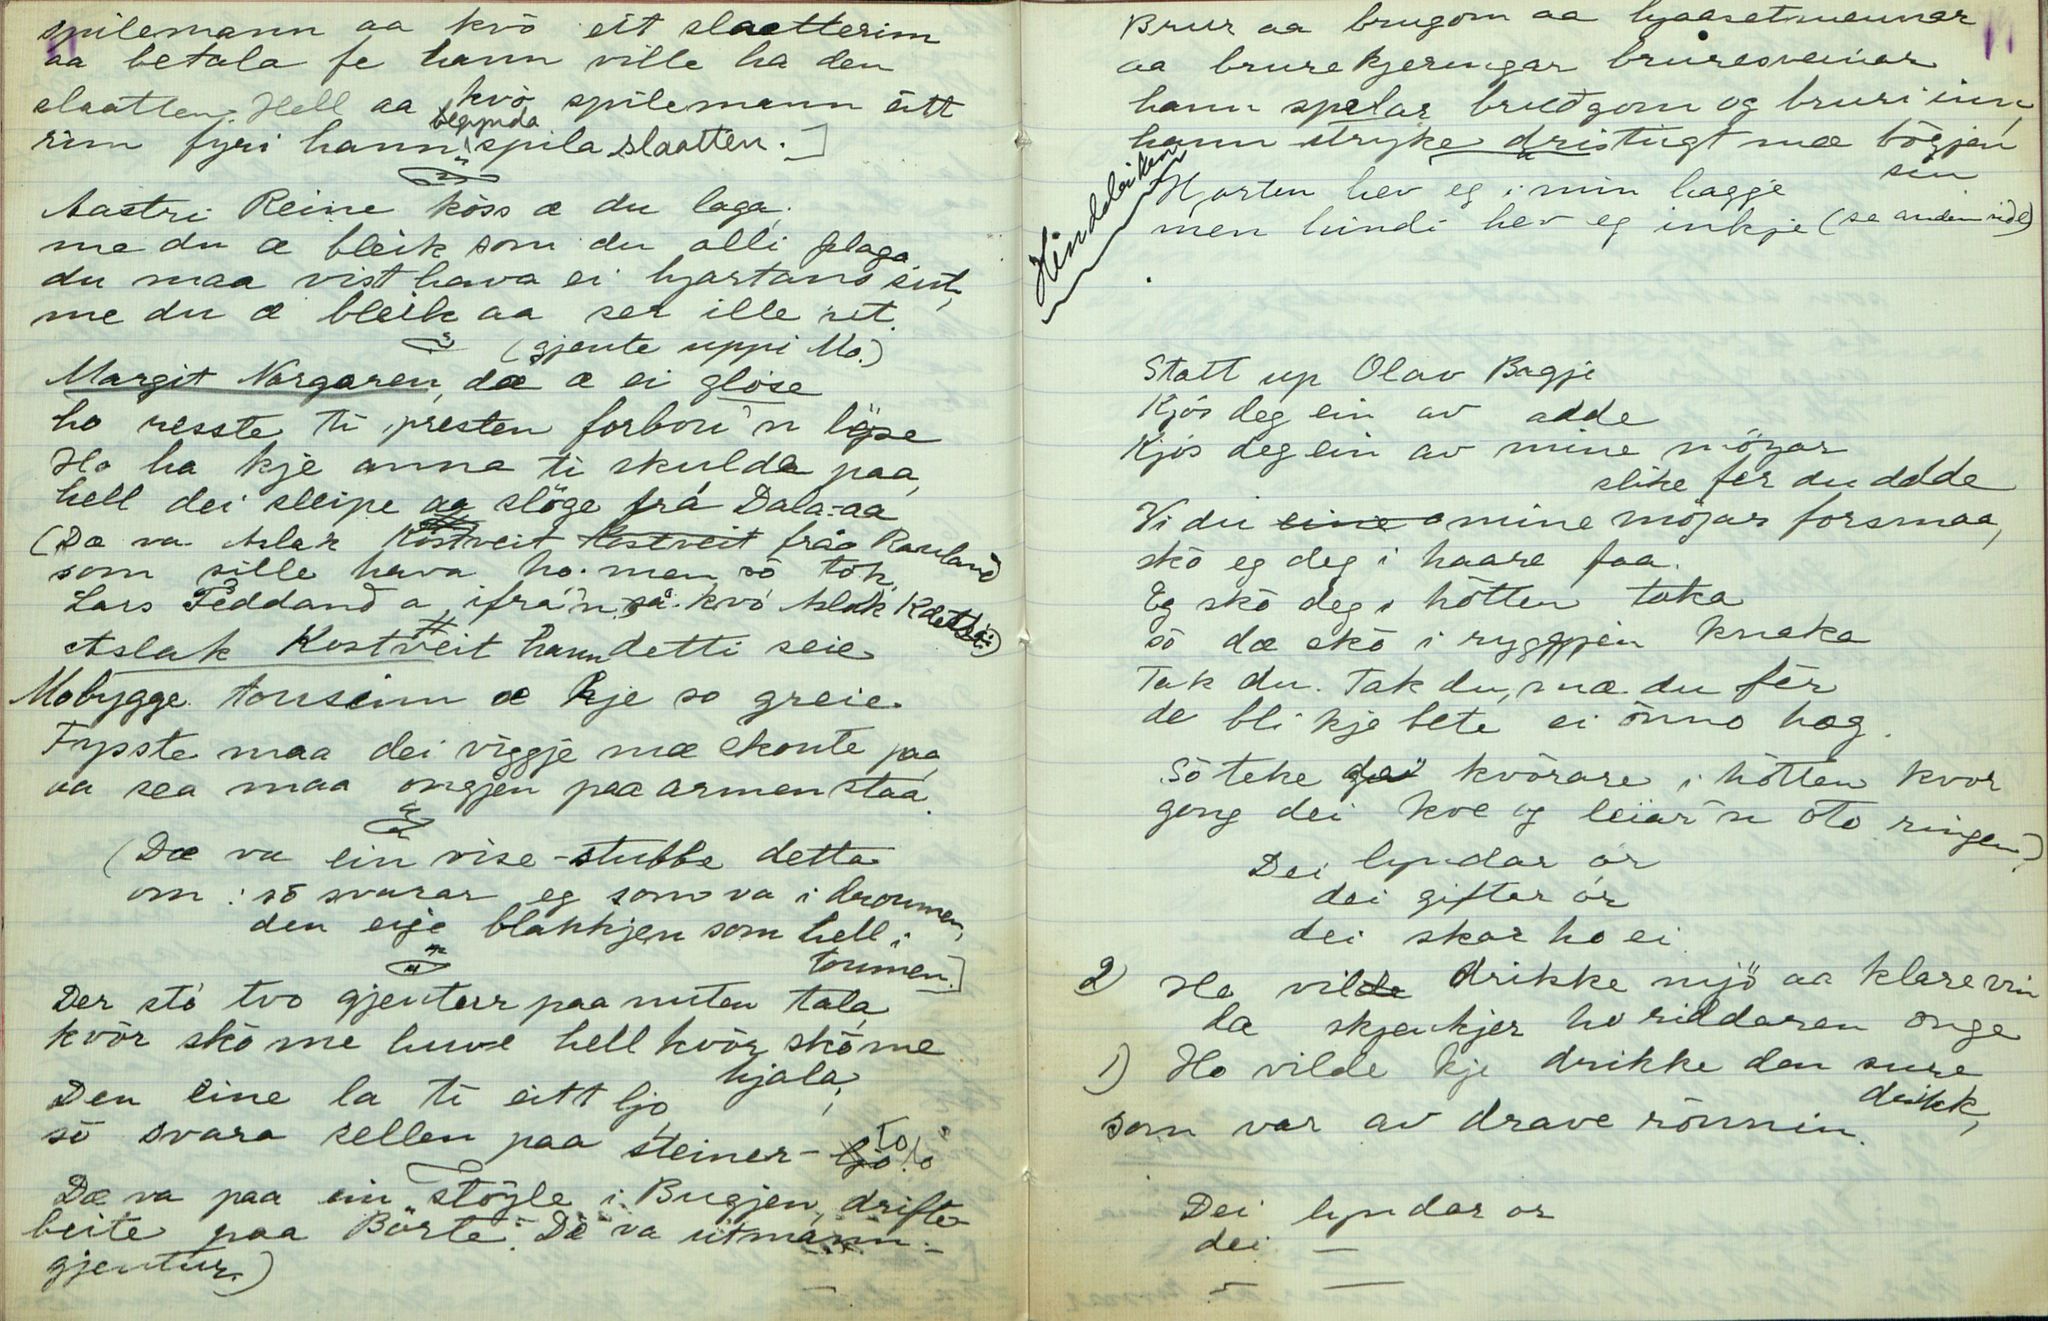 spilemann aa kvö eit slaatterim
aa betala fe hann ville ha den
slaatten. Hell aa kvö spilemann eitt
begynda
rim fyri hann spila slaatten.]
Aastri Reine köss æ du laga,
me du æ bleik som du alli plaga
du maa vist hava ei hjartans sut,
me du æ bleik aa ser ille ut.
(gjente uppi Mo.)
Margit Norgaren, dæ æ ei glöse
ho resste ti presten forbori'n lyse
Ho ha kje anna ti skulda paa,
hell dei sleipe aa slöge frá Dala-aa
(Dæ va Aslak Kostveit Kostveit fraa Rauland
som sille hava ho. men so tok
Lars Teddand a ifrá'n, så kvö Aslak K dette:)
Aslak Kostveit hann detti seie
Mobygge tousinn æ kje so greie
Fysste maa dei viggje mæ skoute paa,
aa sea maa ongjen paa armen staa.
(Dæ va ein vise-stubbe detta
om: sö svarar eg som va i droumen,
den eige blakkjen som hell i
toumen.]
Der stó tvo gjenterr paa nuten tala,
kvör skö me huve hell kvör skö me
hjala,
Den eine la ti eitt ljo,
sö svara sellen paa steiner-ljo to
Dæ va paa ein stöyle i Bugjen, drifte-
beite paa Börte. Dæ va utmann-
gjentur.)
Brur aa brugom aa hjaasetmennar
aa brurekjeringar bruresveinar
hann spelar brudgom og bruri inn,
hann stryke dristigt mæ bögjen
sin
Hindeleiken
Hjorten hev eg i min hagje
men hindi hev eg inkje (se anden side)
Statt up Olav Bagje
Kjós deg ein av adde
Kjós deg ein av mine möyar
slike fér du adde
Vi du eine mine möjar forsmaa,
skö eg deg i haare faa.
Eg skö deg i hötten taka
sö dæ skö i ryggjen knaka
Tak du. Tak du, mæ du fér
de bli kje bete ei önno hag.
Sö teke dei kvörare i hötten kvor
gong dei kve og leiar'n oto ringen)
Dei lyndar ór
dei giftar ór
dei skar ho ei
2) Ho vilde drikke mjö aa klare vin
da skjenkjer ho riddaren onge
1) Ho vilde kje drikke den sure
drikk,
som var av drave rönnin.
Dei lyndar or
dei —